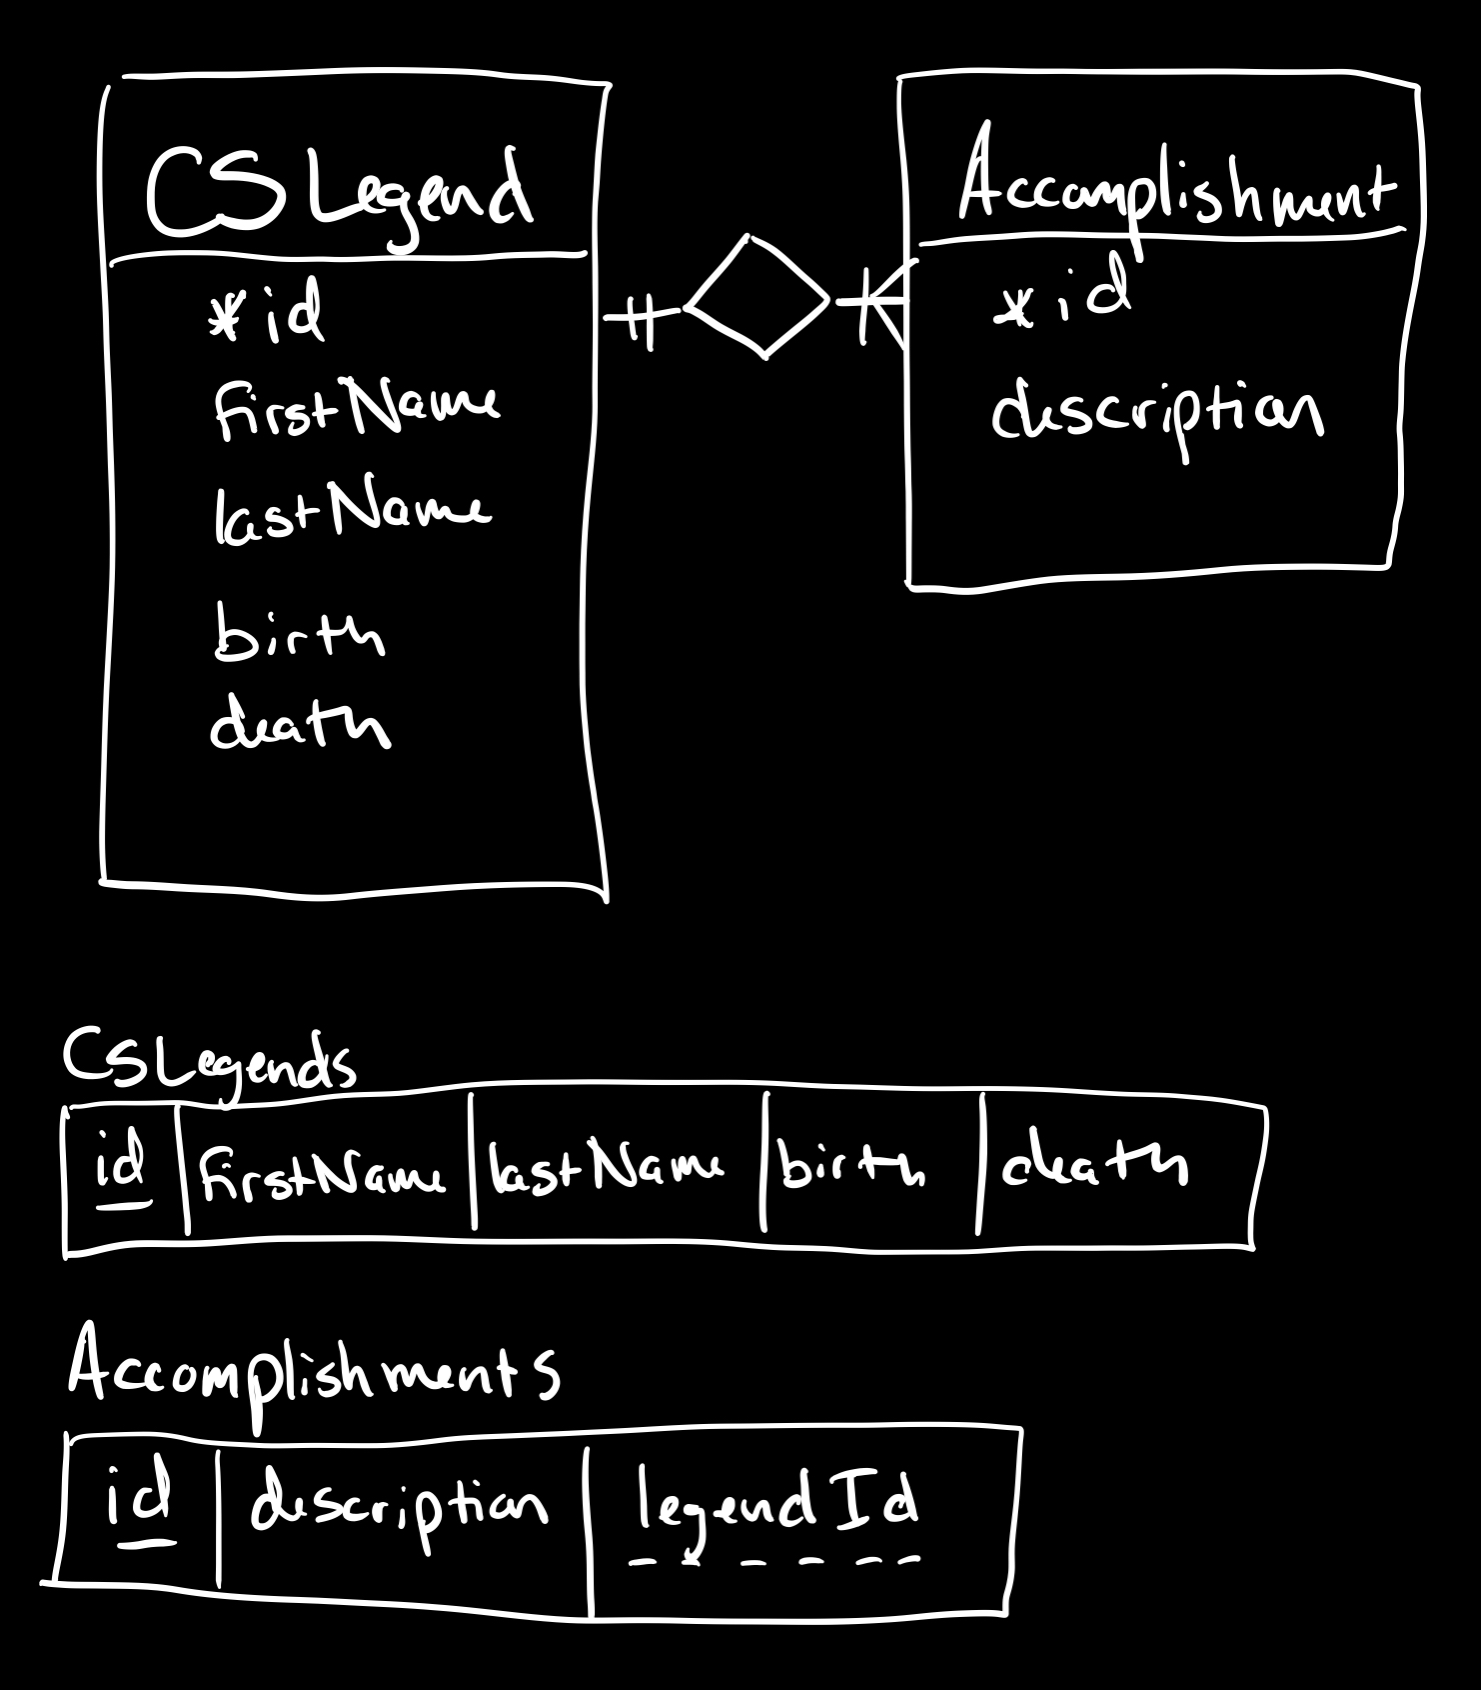 CSLegend
*id
firstName
lastName
birth
death
Accomplishment
*id
description
CSLegends
id firstName lastName birth death
Accomplishments
id description legendId